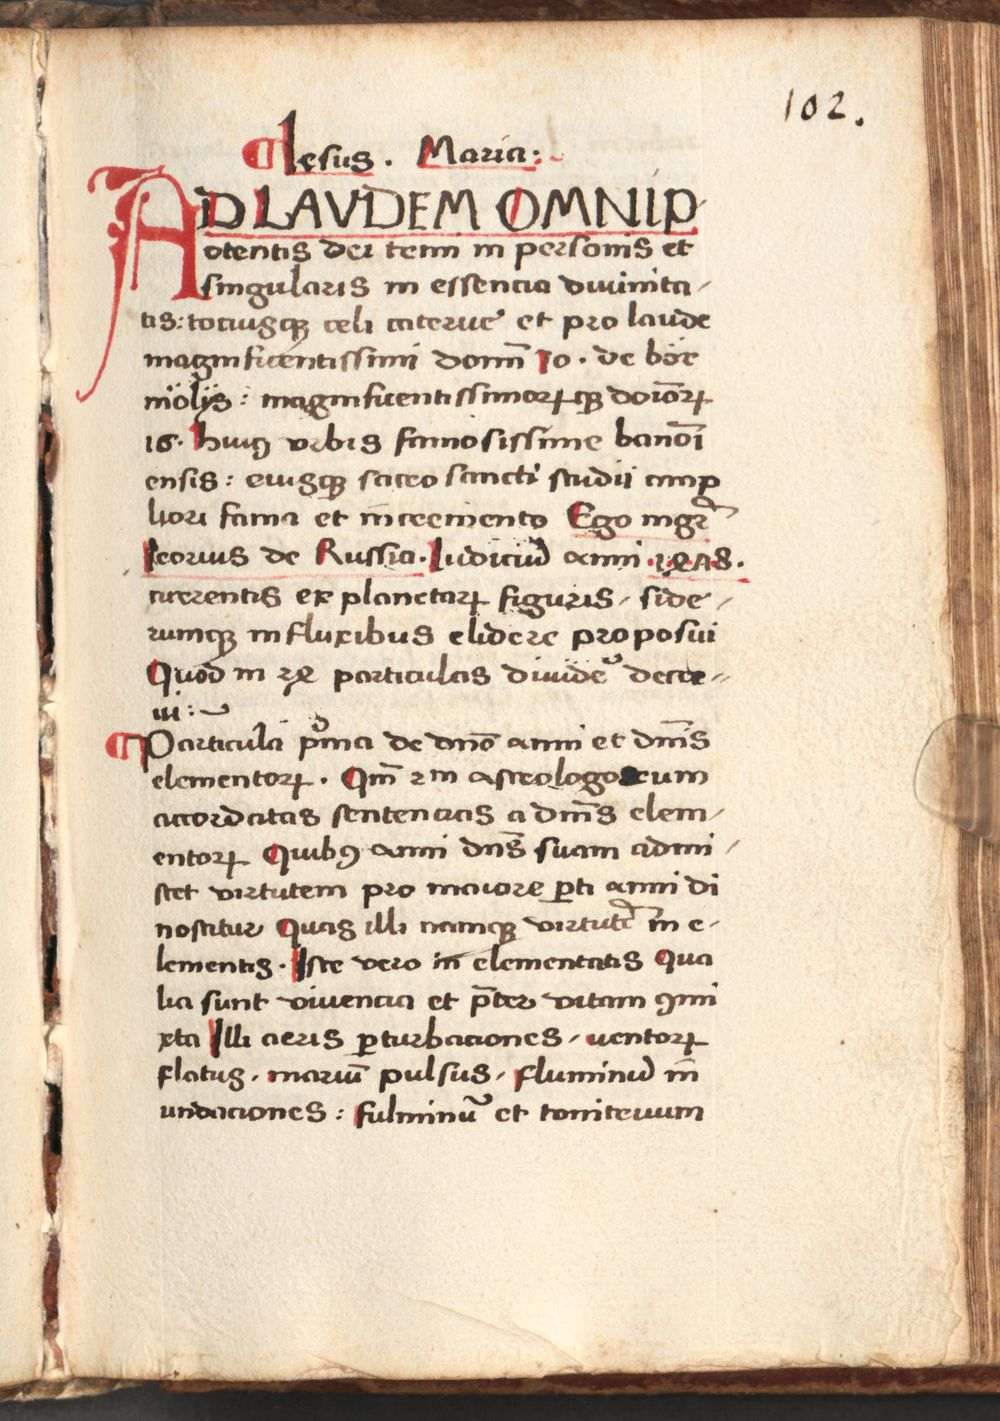 102.
Iesus. Maria:
AD LAVDEM OMNIP
otentis dei terni in personis et
singularis in essencia diuinita-
tis: tociusq̃ celi caterue et pro laude
magnificentissimi domĩ Io. de bẽ
niũolijs: magnificentissimorꝝq̃ doĩorꝝ
16. huiꝰ vrbis famosissime banõi
ensis: eiusq̃ sacro sancti studii amp
liori fama et incremento Ego mgr̃
Ieorius de Russia. Iudiciũ anni 1478.
currentis ex planetarꝝ figuris, side-
rumq̃ influxibus elidere proposui
Quod in 12 particulas diuidẽ decre-
ui:
Particula p̃ma de dño anni et dñis
elementorꝝ. Qm̃ 2m astrologorum
accordatas sentencias a dñis elem-
entorꝝ Quibꝰ anni dñs suam admi-
scet virtutem pro maiore ꝑti anni di
noscitur Quas illi namq̃ virtutẽ in e-
lementis. Iste vero in elementatis Qua
lia sunt viuencia et p̃ter vitam ꝯmi
xta Illi aeris ꝑturbaciones, ventorꝝ
flatus, mariũ pulsus, fluminũ in
undaciones: fulminũ et tonitruum